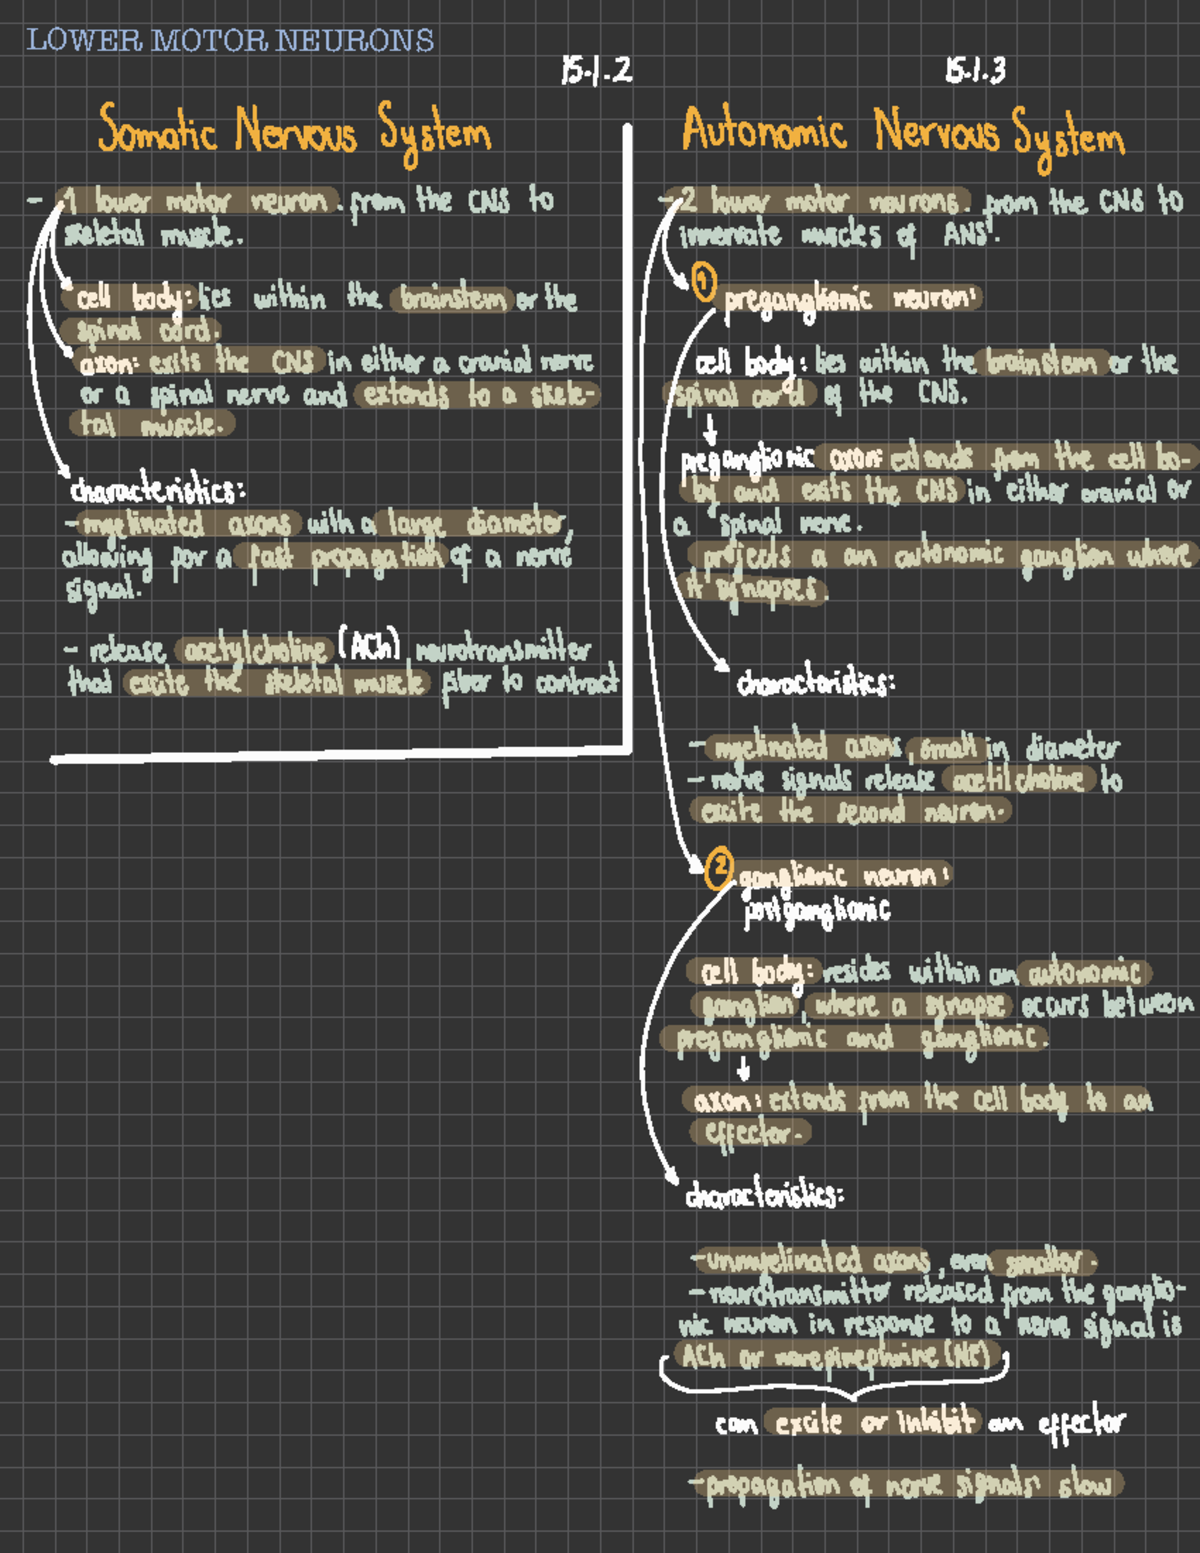 LOWER MOTOR NEURONS
15.1.2
Somatic Nervous System
- 1 lower motor neuron. from the CNS to
skeletal muscle.
cell body: lies within the brainstem or the
spinal cord.
axon: exits the CNS in either a cranial nerve
or a spinal nerve and extends to a skele-
tal muscle.
characteristics:
- myelinated axons with a large diameter,
allowing for a fast propagation of a nerve
signal.
- release acetylcholine (ACh) neurotransmitter
that excite the skeletal muscle fiber to contract
15.1.3
Autonomic Nervous System
- 2 lower motor neurons. from the CNS to
innervate muscles of ANS.
1 preganglionic neuron:
cell body: lies within the brainstem or the
spinal cord of the CNS.
↓
preganglionic axon: extends from the cell bo-
by and exits the CNS in either cranial or
a spinal nerve.
projects a an autonomic ganglion where
it synapses.
characteristics:
- myelinated axons, small in diameter
- nerve signals release acetilcholine to
excite the second neuron.
2 ganglionic neuron:
postganglionic
cell body: resides within an autonomic
ganglion, where a synapse occurs between
preganglionic and ganglionic.
↓
axon: extends from the cell body to an
effector.
characteristics:
- unmyelinated axons, even smaller.
- neurotransmitter released from the ganglio-
nic neuron in response to a nerve signal is
ACh or norepinephrine (NE)
can excite or inhibit an effector
- propagation of nerve signals: slow